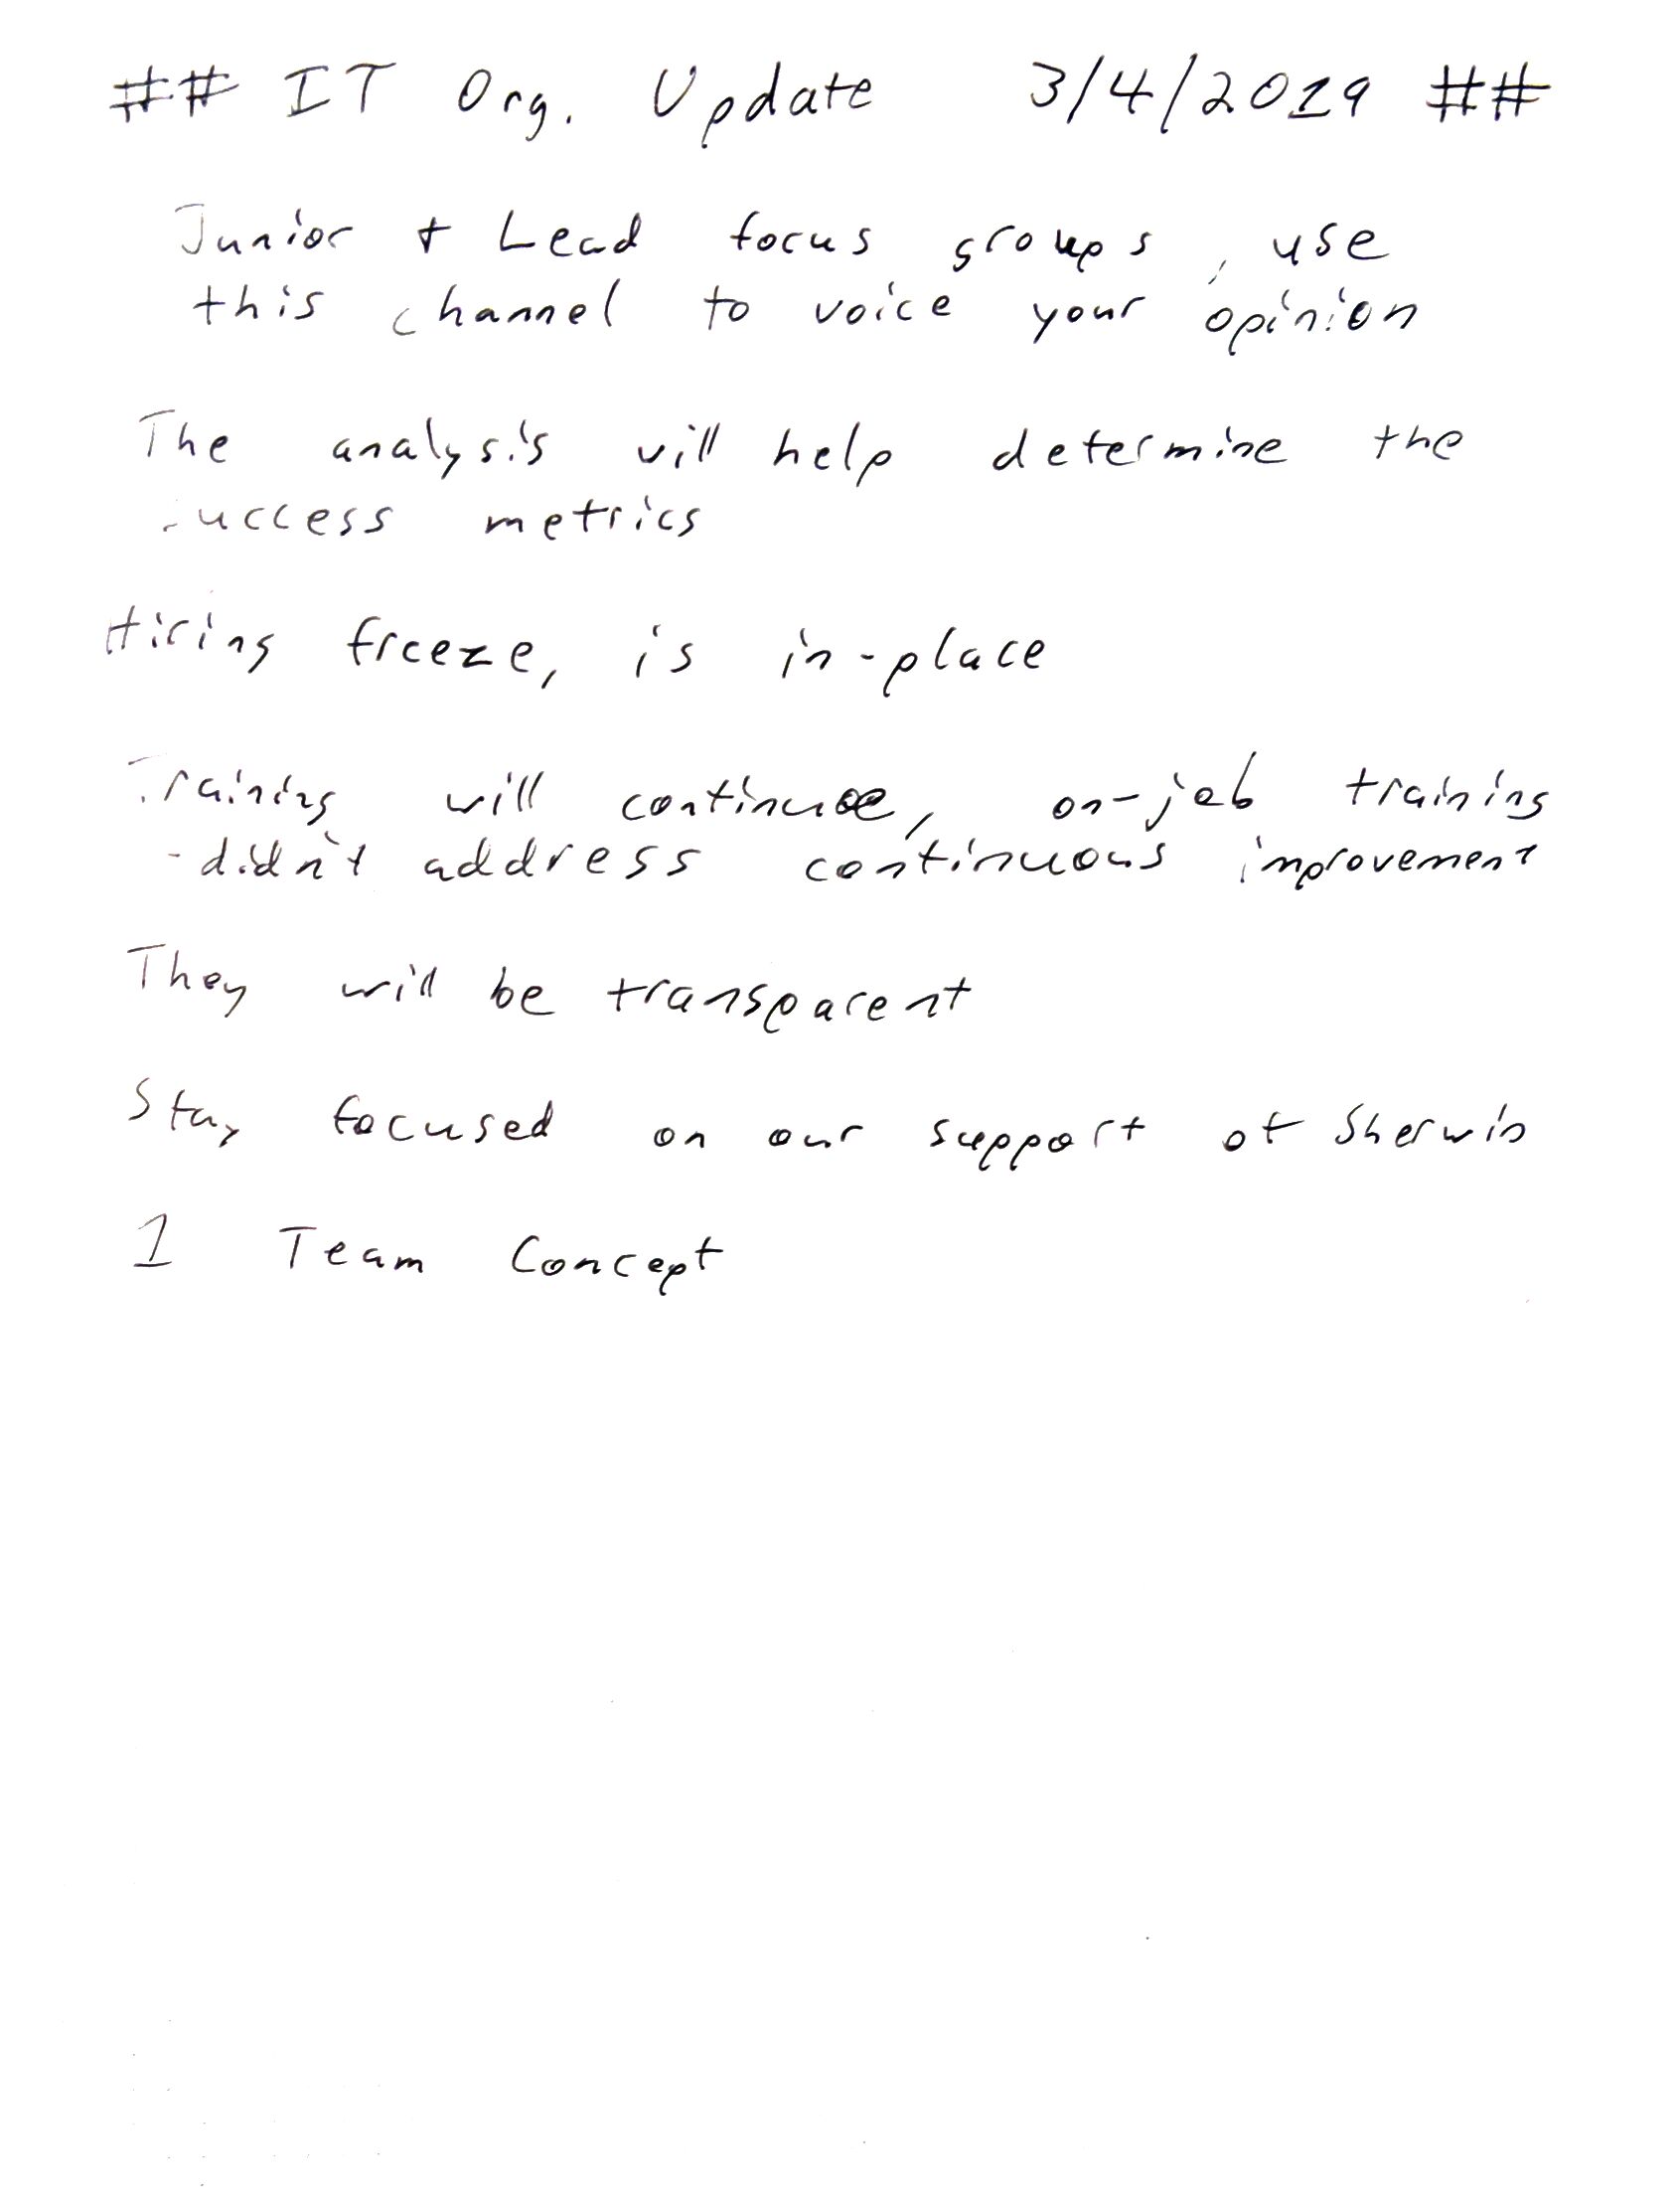 ## IT Org. Update 3/4/2019 ##
Junior + Lead focus groups, use
this channel to voice your opinion
The analysis will help determine the
success metrics
Hiring freeze, is in-place
Training will continue, on-job training
-didn't address continuous improvement
They will be transparent
Stay focused on our support of Sherwin
1 Team Concept